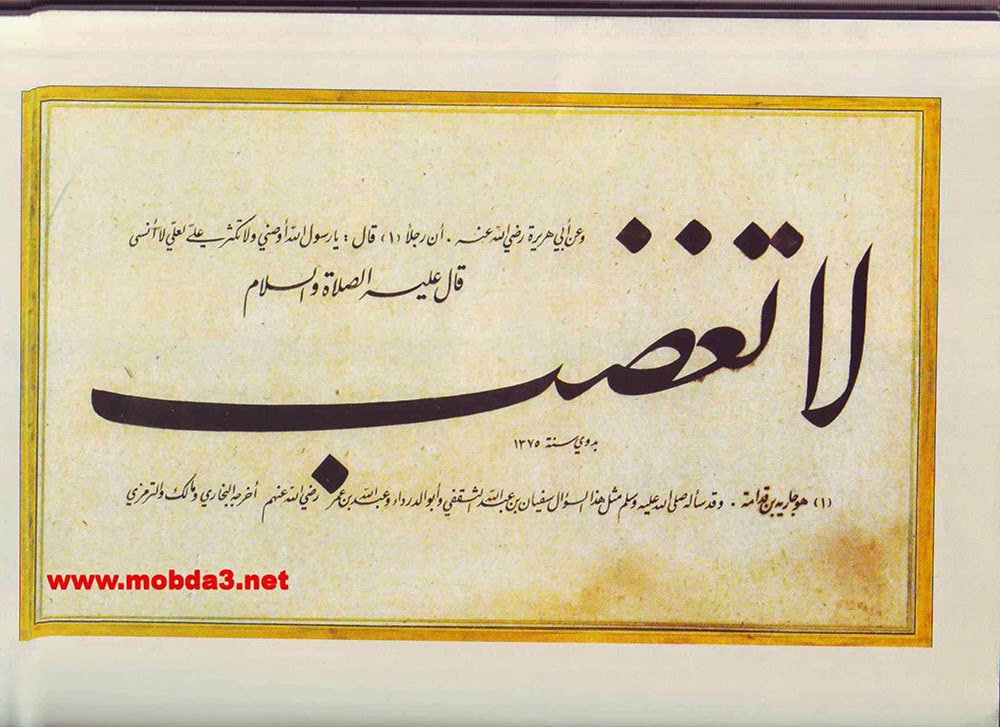 وعن أبي هريرة رضي الله عنه . أن رجلاً (١) قال : يا رسول الله أوصني ولا تكثر علي لعلي لا أنسى
قال عليه الصلاة والسلام
لا تغضب
بدوي سنة ١٣٧٥
(١) هو جارية بن قدامة . وقد سأله صلى الله عليه وسلم مثل هذا السؤال سفيان بن عبد الله الثقفي وأبو الدرداء وعبد الله بن عمر رضي الله عنهم أخرجه البخاري ومالك والترمزي
www.mobda3.net